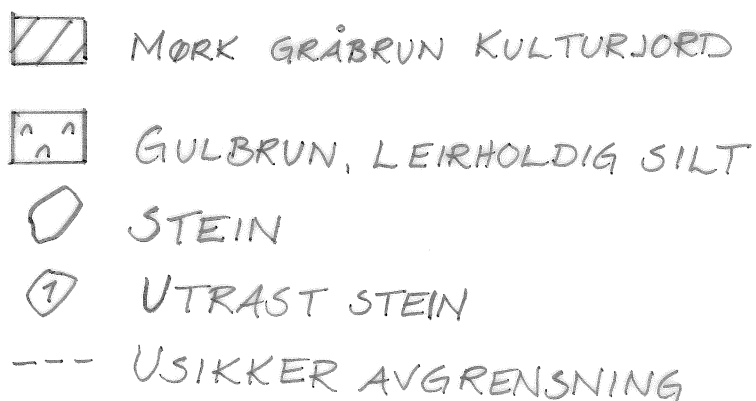 MØRK GRÅBRUN KULTURJORD
GULBRUN, LEIRHOLDIG SILT
STEIN
1 UTRAST STEIN
USIKKER AVGRENSNING